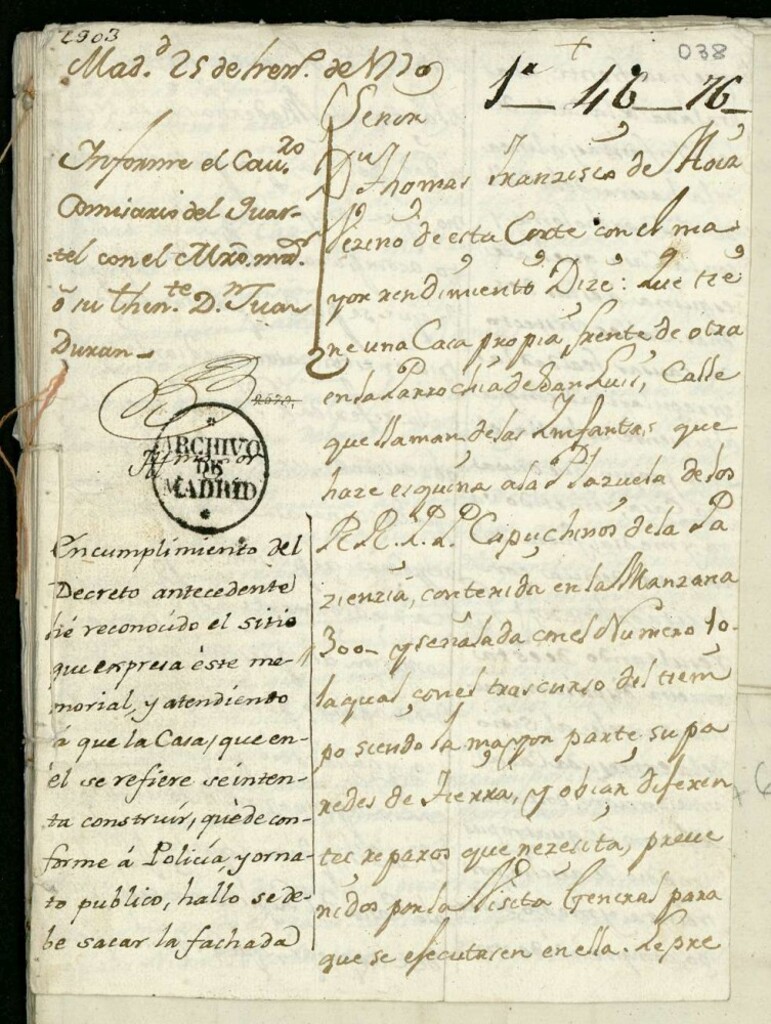 2903
038
Mad.d 25 de hen.o de 1770
1a_ 46_ 76
Informe el Cav.ro
Comisario del Quar-
tel con el Mro. mr.
ò su then.te D.n Juan
Duran_
ARCHIVO
DE
MADRID
En cumplimiento del
Decreto antecedente
hé reconocido el sitio
que expresa éste me-
morial, y atendiento
á que la Casa, que en-
él se refiere se inten-
ta construir, quède con-
forme á Policía, y orna-
to publico, hallo se de-
be sacar la fachada
Señor
D.n Thomas Franzisco de
Vezino de esta Corte con el ma
yor rendimiento Dize: Que tie
ne una Casa propia, frente de otra
en la Parrochia de San Luis, Calle
que llaman de las Infantas, que
haze esquina a la Plazuela de los
R.R. P.P. Capuchinos de la Pa
zienzia, contenida en la Manzana
300_ y señalada con el Numero 10_
la qual, con el trascurso del tiem
po siendo la mayor parte su pa
redes de Tierra, y obiar diferen
tes reparos que nezesita, preve
nidos por la Visita General para
que se ejecutasen en ella. Se pre